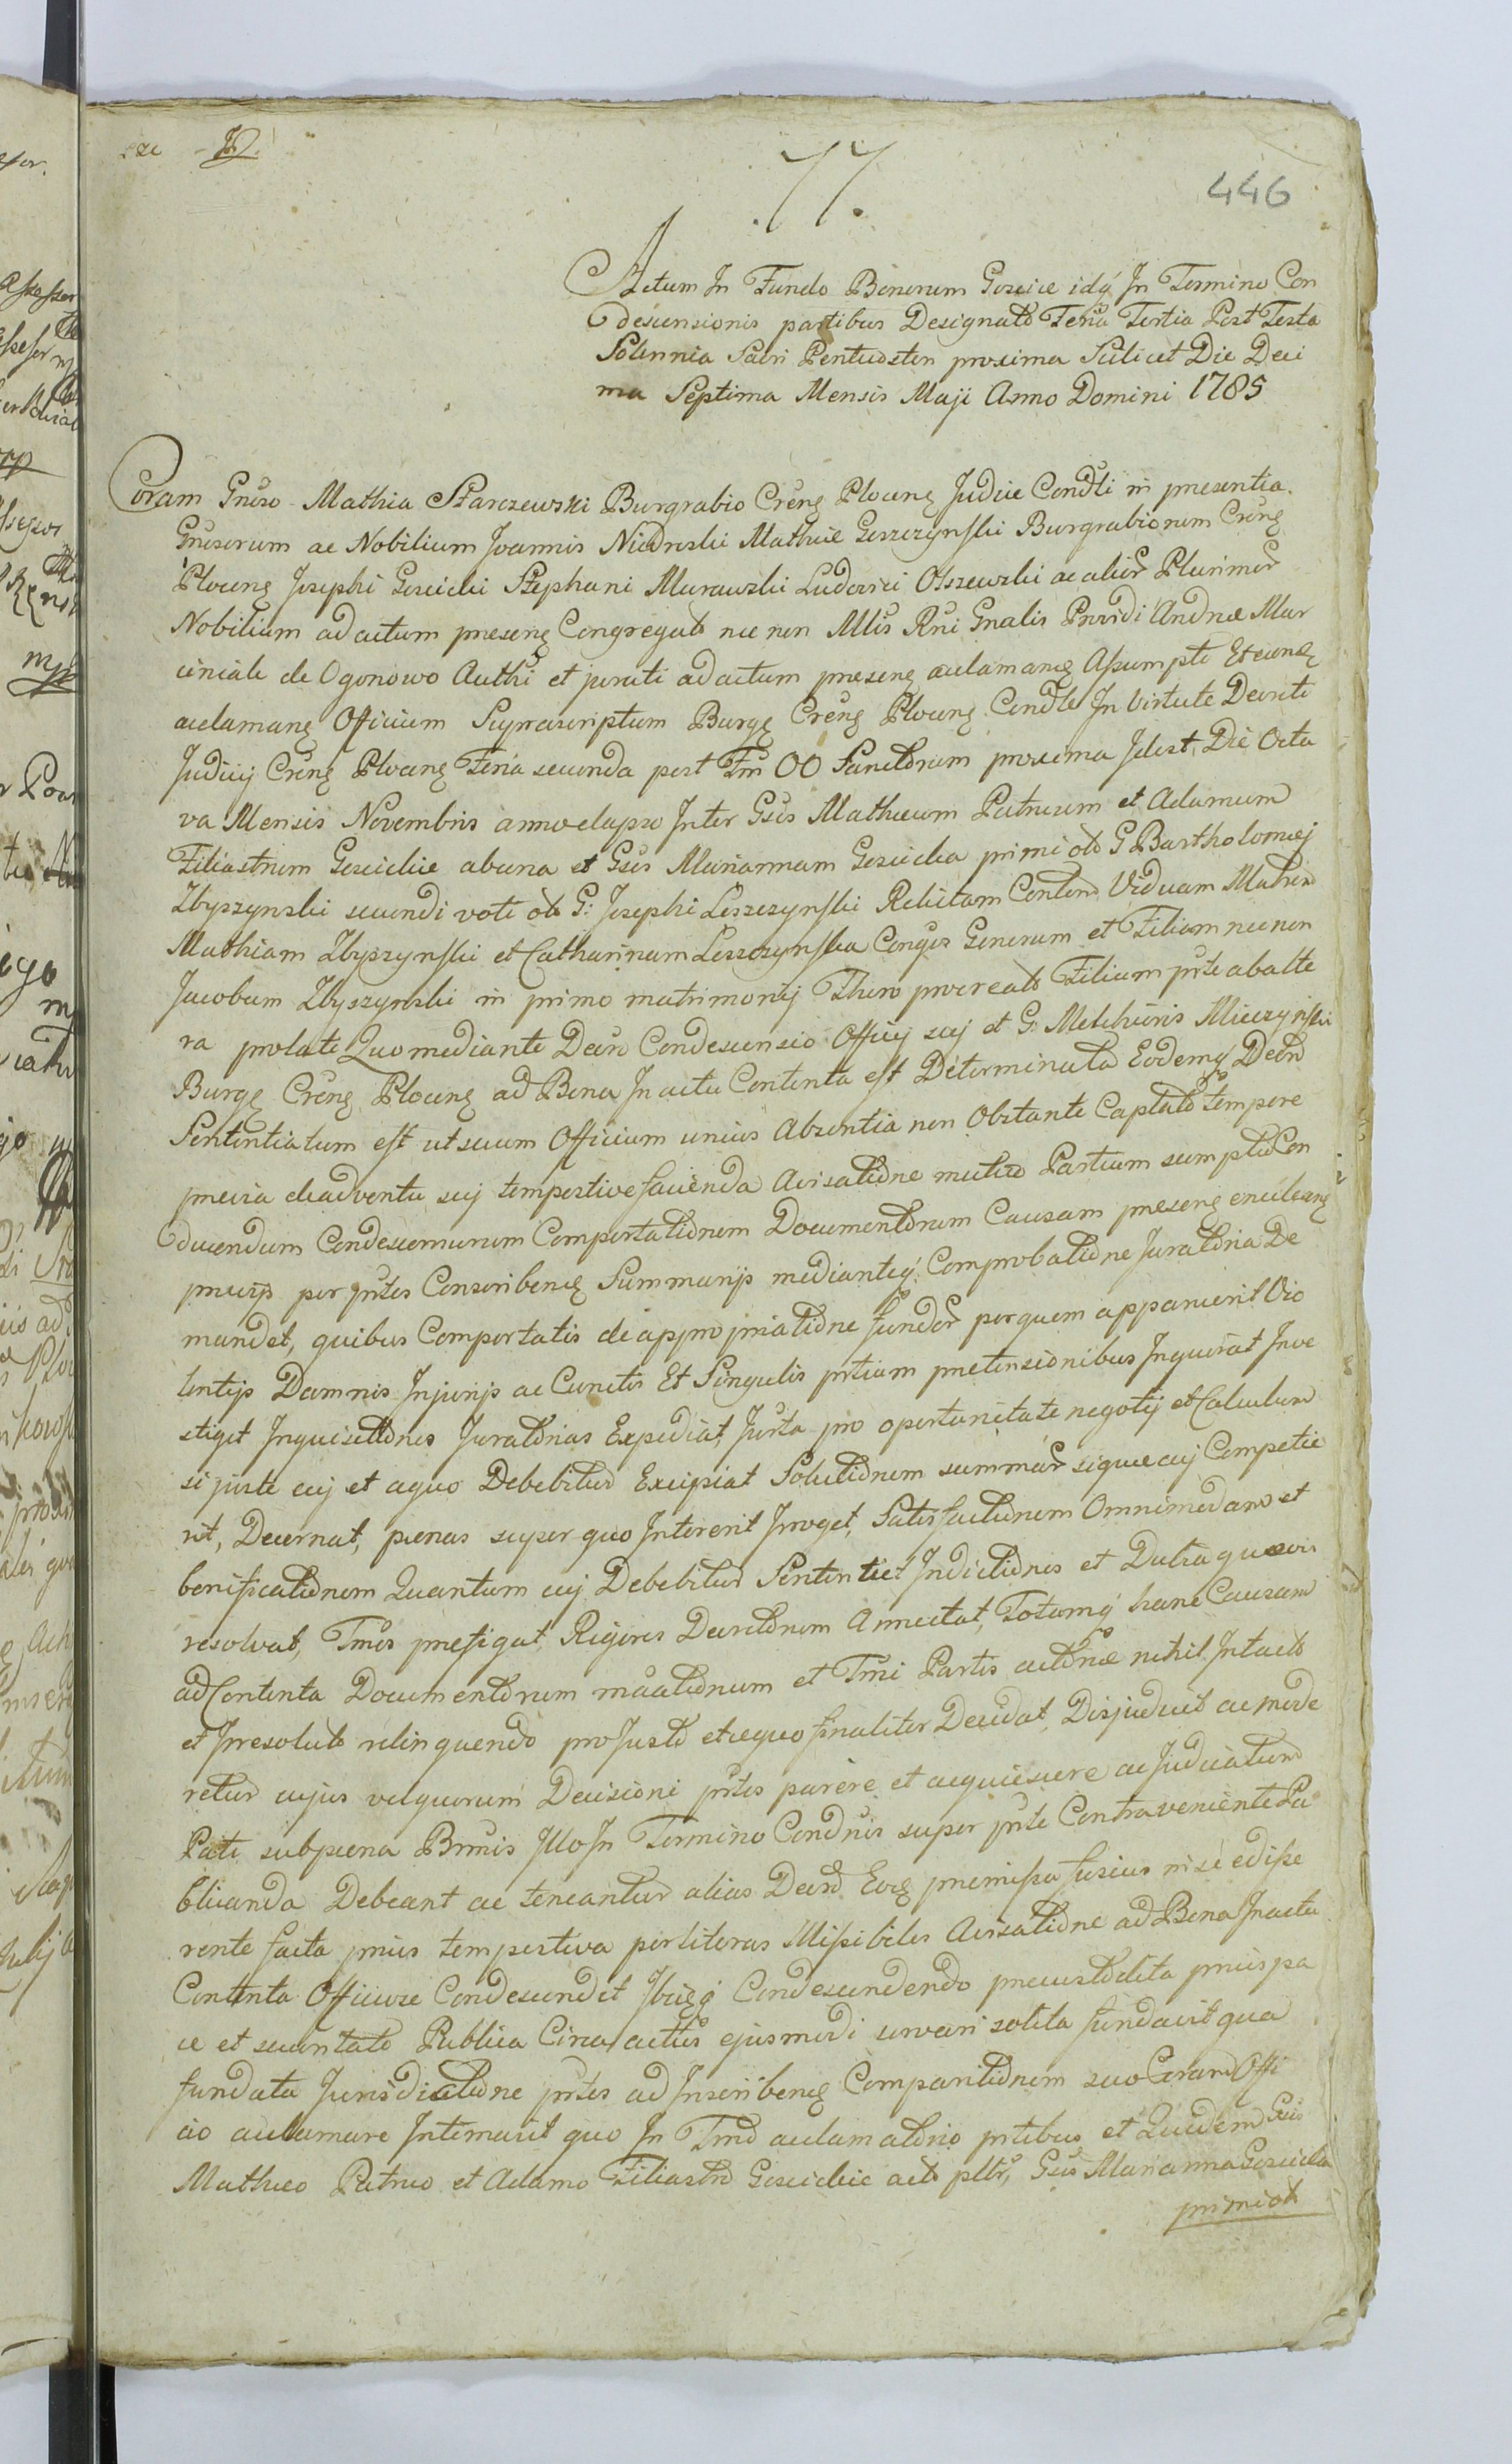 77.
446
Actum In Fundo Bonorum Goscice idq In Termino Con
descensionis partibus Designato Feria Tertia Post Festa
Solennia Sacri Pentecosten proxima Scilicet Die Deci
ma Septima Mensis Maji Anno Domini 1785
Coram Gnroso Mathia Starczewski Burgrabio Creng Ploceng Judice Condli in presentia
Gnrosorum ac Nobilium Joannis Mathiæ Leszczynski Burgrabiorum Creng
Ploceng Josephi Goscicki Stephani Murawski Ludovici Olszewski ac alior Plurimor
Nobilium ad actum preseng Congregato nec non Mlis Rni Gnalis Providi Andreæ Mar
ciniak de Ogonowo Authi et jurati ad actum preseng acclamang Assumpti Et eum
acclamang Officium Suprascriptum Burgg Creng Ploceng Condle In Virtute Decreti
Judicij Creng Ploceng Feria secunda post Fm OO Sanctorum proxima Idest Die Octa
va Mensis Novembris anno elapso Inter Gsos Mathæum Patruum et Adamum
Filiastrum Goscickie ab una et Gsos Mariannam Goscicka primi oto G Bartholomæj
Zbyszynski secundi voti oto G: Josephi Leszczynski Relictam Contem Viduam Matrem
Mathiam Zbyszynski et Catharinam Leszczynska Conges Generum et Filiam nec non
Jacobum Zbyszynski in primo matrimonij Thoro procreato Filium prte ab alte
ra prolate Quo mediante Decro Condescensio Officij sui et G: Melchioris Miczynski
Burgg Creng Ploceng ad Bona In actu Contenta est Determinata Eodemq Decro
Sententiatum est ut suum Officium unius Absentia non Obstante Captato tempore
previa de adventu suj tempestive facienda Avisatione mutuo Partium sumptu Con
ducendum Condescensurum Comportationem Documentorum Causam preseng
previjs per prtes Conscribeng Summarijs medianteq Comprobatione Juratoria De
mandet, quibus Comportatis de appropriatione fundor per quem apparuerit Vio
lentijs Damnis Injurijs ac Cunctis Et Singulis prtium pretensionibus Inquirat Inve
stiget Inquisitiones Juratorias Expediat, Juxta pro oportunitate negotij et Calculum
si juste cuj et aquo Debebitur Excipiat Solutionem summar sique cuj Competie
rit, Decernat, pænas super quo Intererit Irroget, Satisfactionem Omnimodam et
bonificationem Quantum cuj Debebitur Sentintiet Indictiones et Dutra quævis
resolvat, Tmos prefigat Rigores Decretorum Annectat, Totamq hanc Causam
ad Contenta Documentorum et Tmi Partis actoræ nihil Intacto
et Irresoluto relinquendo pro Justo et æquo finaliter Decidat, Disjudicet ac mode
retur cujus vel quorum Decisioni prtes parere et acquiescere ac Judicatum
Pati sub pæna Bnnis Illo In Termino Condnis super prte Contraveniente Pu
blicanda Debeant ac teneantur alias Decro Eoq premissa fusius in se edisse
rente facta prius tempestiva per literas Missibiles Avisatione ad Bona In actu
Contenta Officiose Condescendit Ibiq Condescendendo precustodita prius pa
ce et securitate Publica Circa actus ejusmodi servari solita fundavit qua
fundata Jurisdictione prtes ad Inscribeng Comparitionem suo Coram Offi
cio acclamare Intimavit quo In Tmo acclamatorio prtibus et Quidem Gsis
Mathæo Patruo et Adamo Filiastro Goscickie acto pltr, Gsis Marianna Goscicka
primi oto